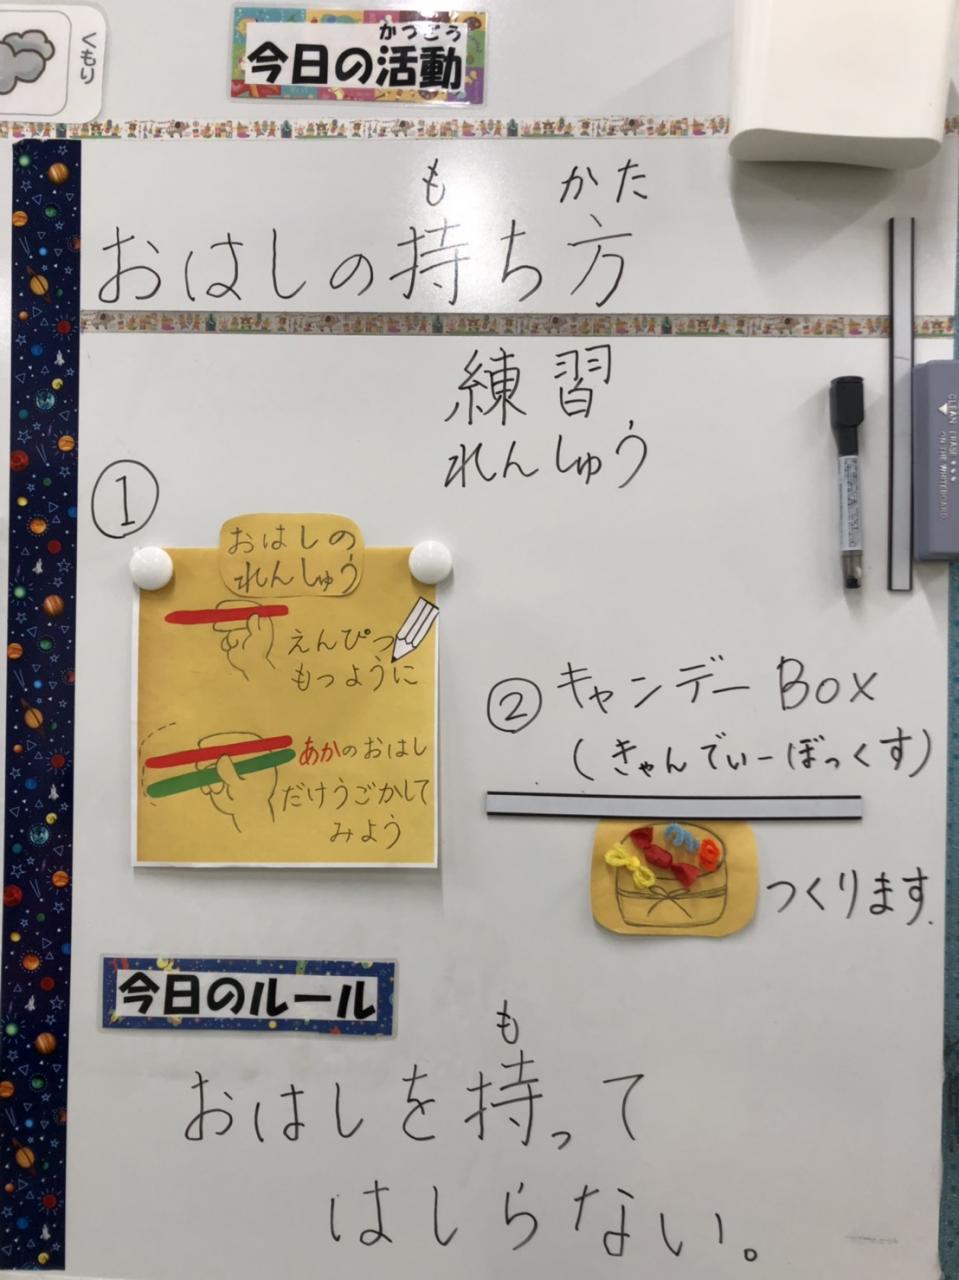 くもり
かつどう
今日の活動
も かた
おはしの持ち方
練習
れんしゅう
①
おはしの
れんしゅう
えんぴつ
もつように
あかのおはし
だけうごかして
みよう
② キャンデー Box
(きゃんでぃーぼっくす)
つくります.
今日のルール
も
おはしを持って
はしらない。
CLEAN ERASE
ON THE WHITEBOARD